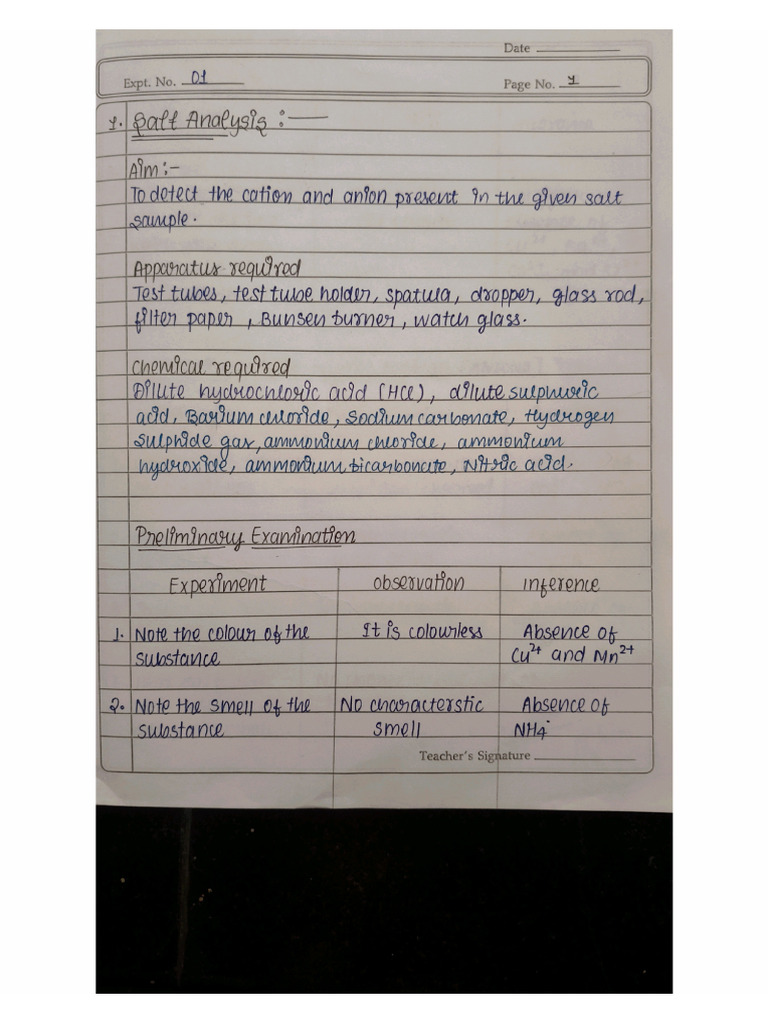 Date
Expt. No. 01
Page No. 1
1. Salt Analysis :—
Aim :-
To detect the cation and anion present in the given salt
sample.
Apparatus required
Test tubes, test tube holder, spatula, dropper, glass rod,
filter paper, Bunsen burner, watch glass.
Chemical required
Dilute hydrochloric acid (HCl), dilute sulphuric
acid, Barium chloride, Sodium carbonate, Hydrogen
sulphide gas, ammonium chloride, ammonium
hydroxide, ammonium bicarbonate, Nitric acid.
Preliminary Examination
Experiment observation inference
1. Note the colour of the It is colourless Absence of
substance Cu²⁺ and Mn²⁺
2. Note the smell of the No characterstic Absence of
substance smell NH₄⁻
Teacher's Signature